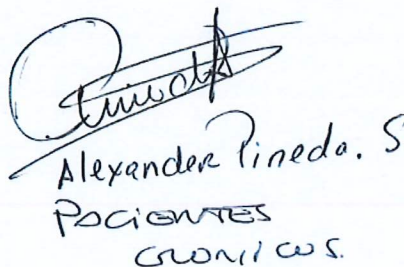 Alexander Pineda. S
PACIENTES
CRONICOS.